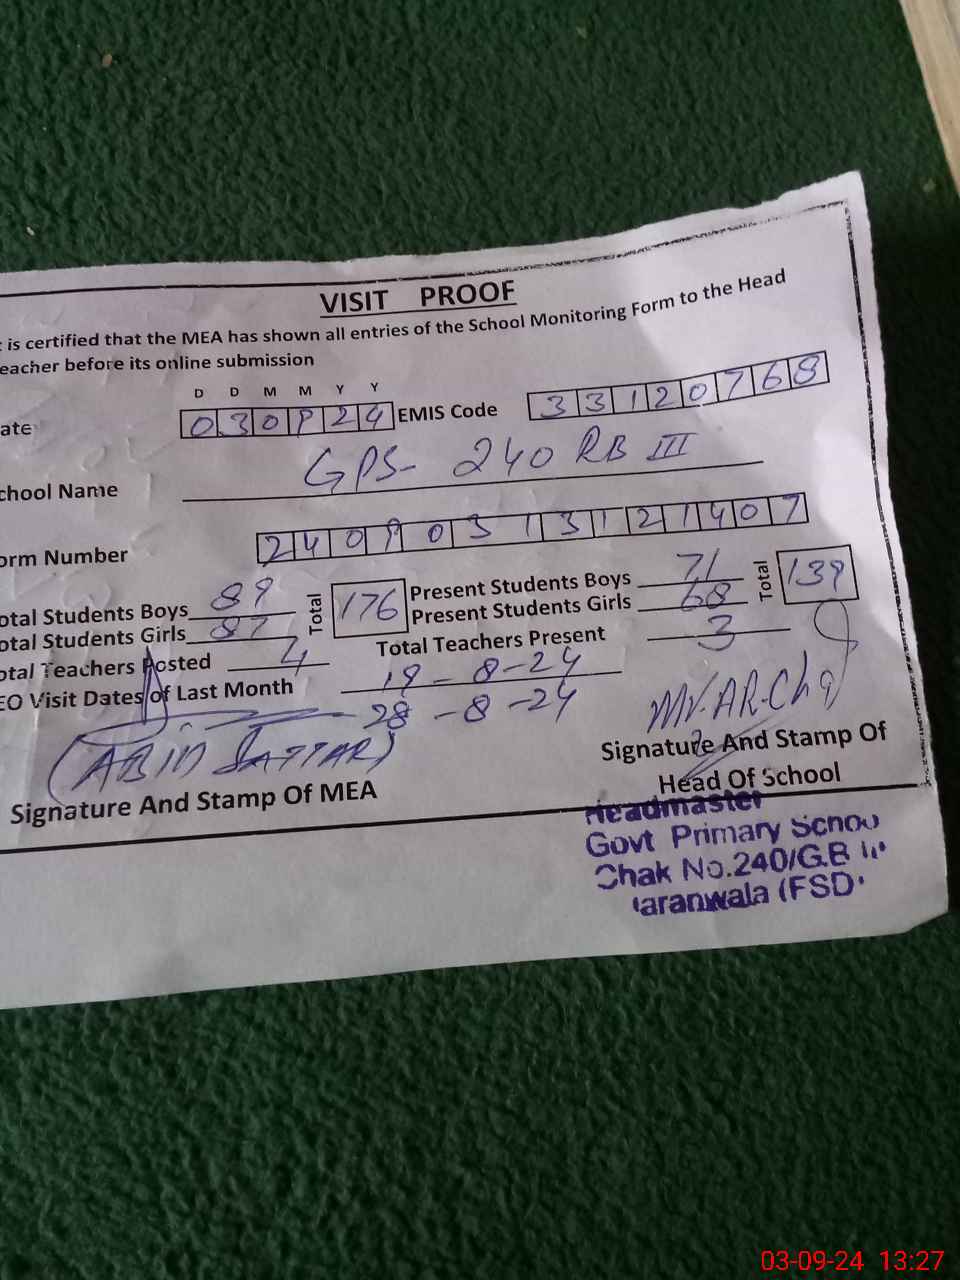 VISIT PROOF
is certified that the MEA has shown all entries of the School Monitoring Form to the Head
eacher before its online submission
D D M M Y Y
ate 030924 EMIS Code 33120768
chool Name GPS- 240 RB III
orm Number 2409031312 1407
otal Students Boys 89 Total 176 Present Students Boys 71 Total 139
otal Students Girls 87 Present Students Girls 68
otal Teachers Posted 4 Total Teachers Present 3
EO Visit Dates of Last Month 19-8-24
28-8-24
(ABID SATTAR)
Signature And Stamp Of MEA
Signature And Stamp Of
Head Of School
Headmaster
Govt Primary Schoo
Chak No.240/G.B
aranwala (FSD
03-09-24 13:27